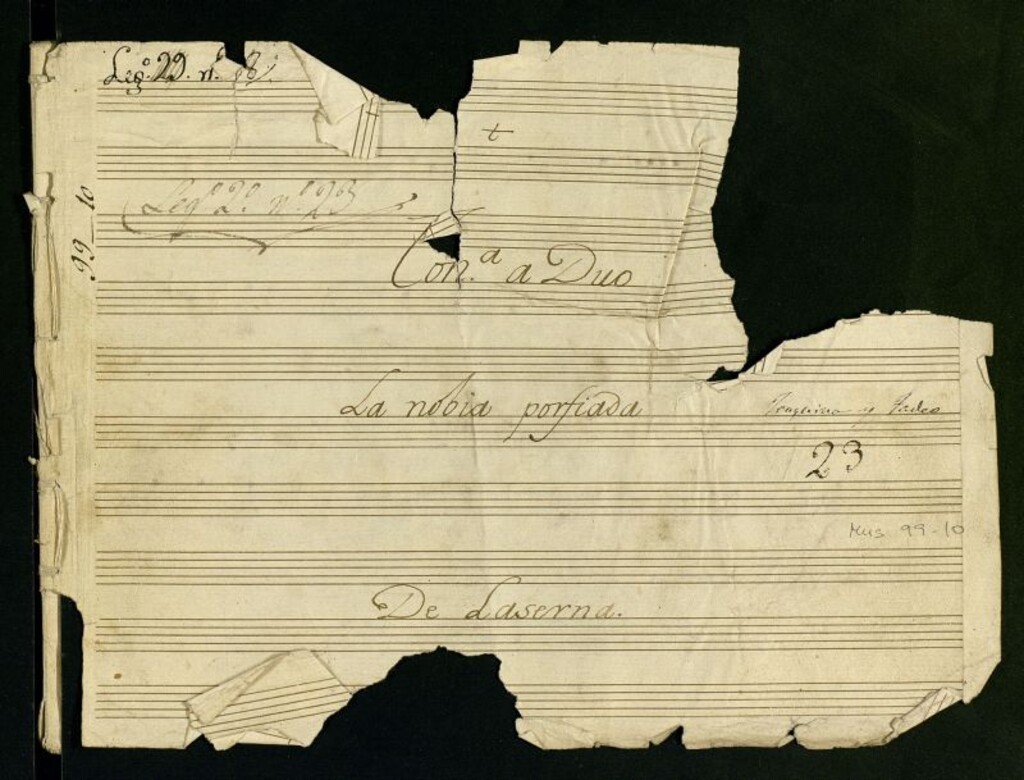 Leg.º 29. n.º 18.
99-10
Leg.º 2.º n.º 23
Con.ª a Duo
La nobia porfiada
Joaquina y Tadeo
23
Mus 99-10
De Laserna.